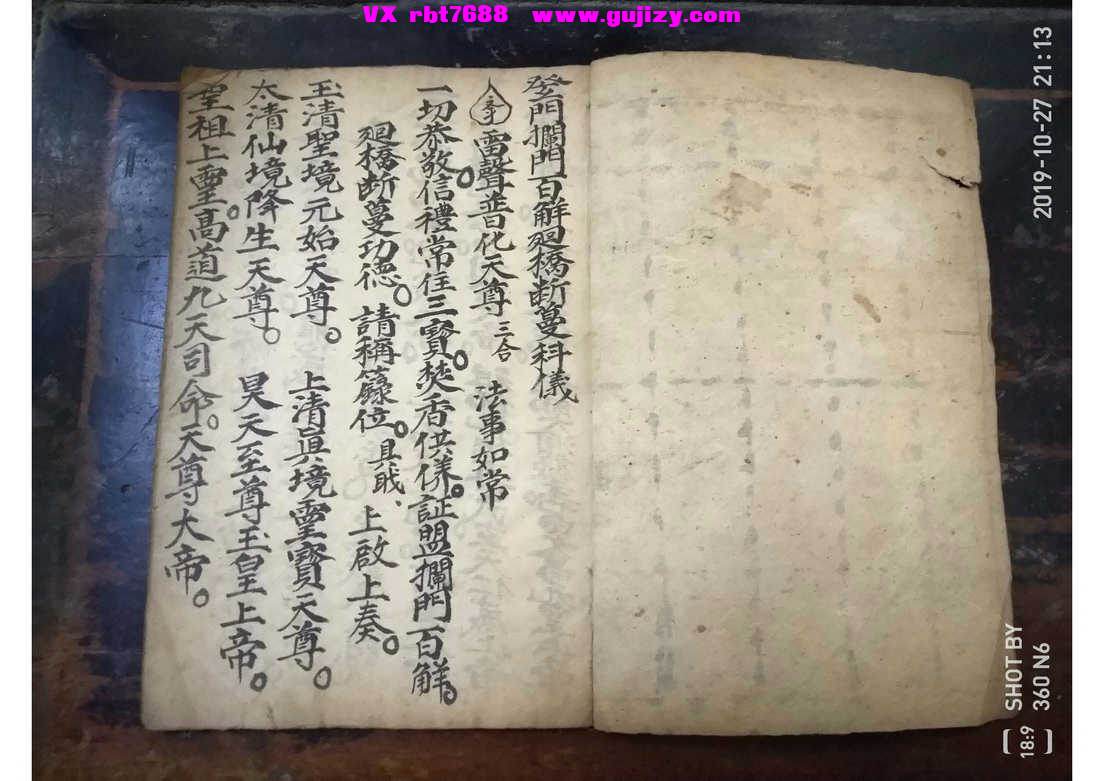 VX rbt7688 www.gujizy.com
登門攔門百解廻橋断蔓科儀
雷聲普化天尊 三合 法事如常
一切恭敬信禮常住三寶焚香供養証盟攔門百解
廻橋断蔓功德 請稱籙位具戢上啟上奏
玉清聖境元始天尊 上清眞境靈寶天尊
太清仙境降生天尊 昊天至尊玉皇上帝
聖祖上靈高道九天司命天尊大帝
2019-10-27 21:13
SHOT BY
360 N6
18:9